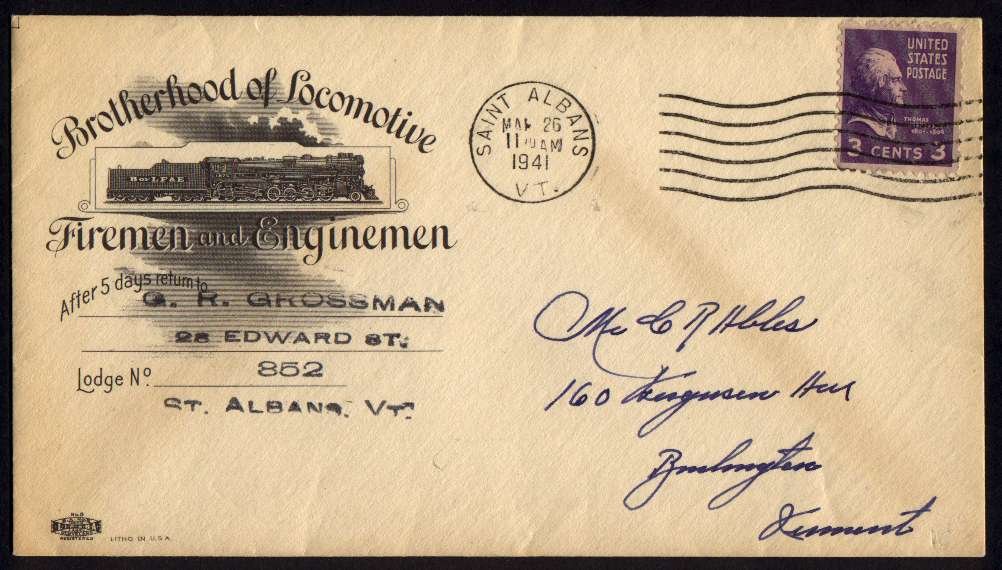 Brotherhood of Locomotive
B of L F & E
Firemen and Enginemen
After 5 days return to
G. R. GROSSMAN
28 EDWARD ST.
Lodge No. 852
ST. ALBANS, VT.
SAINT ALBANS
MAR 26
11 AM
1941
VT.
UNITED
STATES
POSTAGE
THOMAS
1801-1809
3 CENTS 3
Mr C R Ables
160 Ferguson Ave
Burlington
Vermont
REGISTERED
LITHO IN U.S.A.